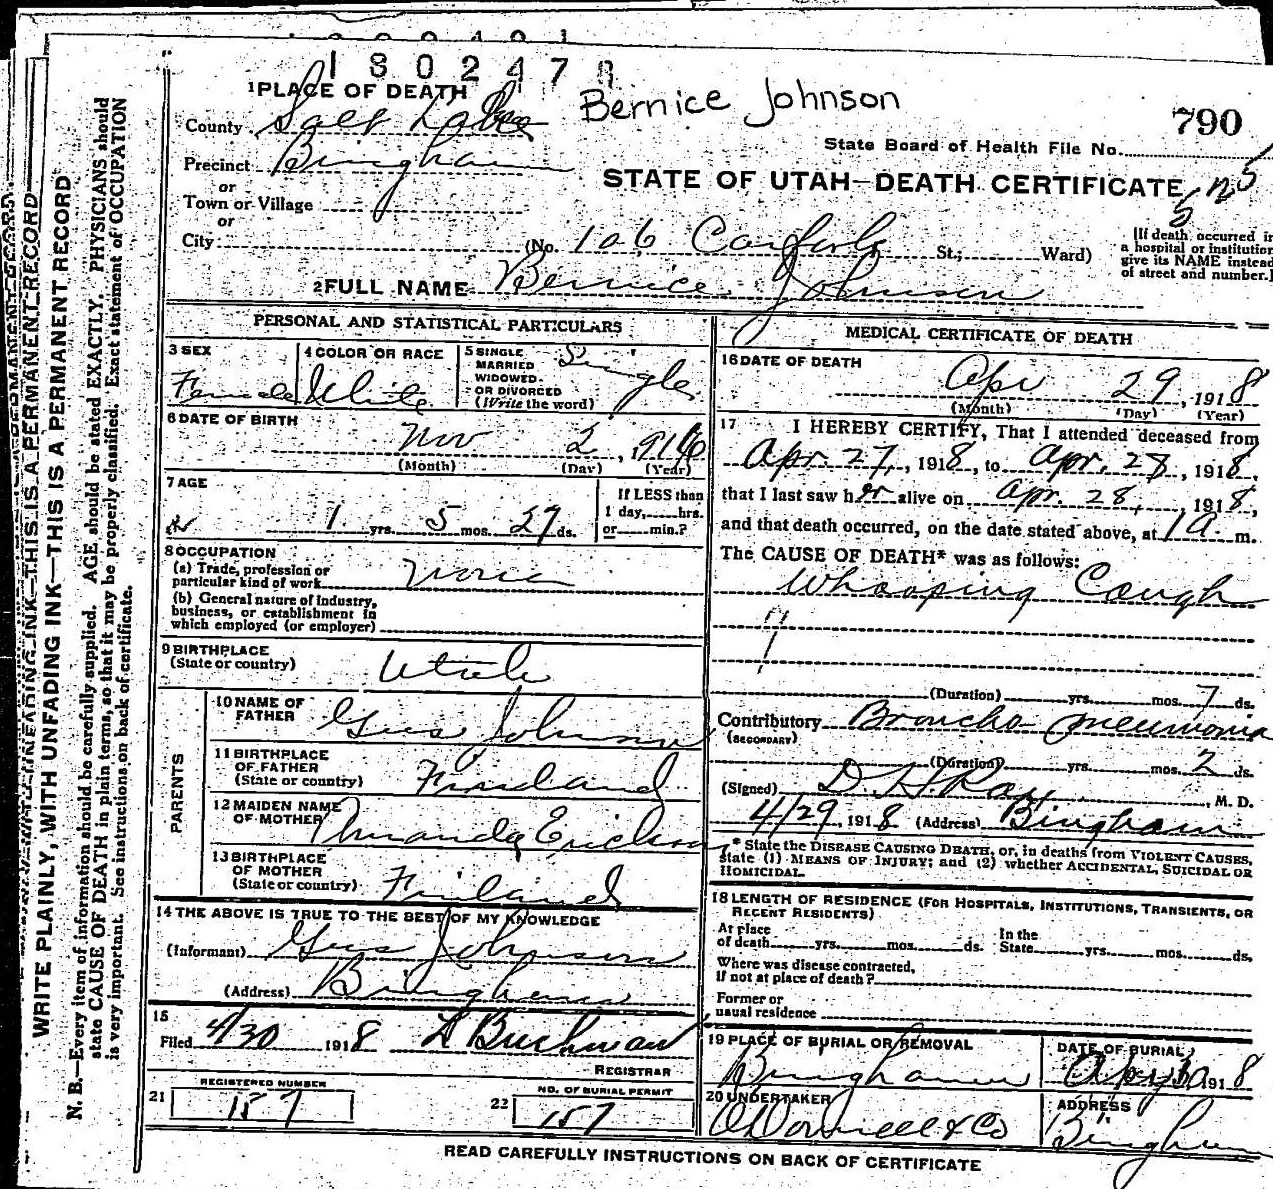 1802478
1 PLACE OF DEATH
Bernice Johnson
790
County Salt Lake
State Board of Health File No.
Precinct Bingham
or
STATE OF UTAH—DEATH CERTIFICATE
Town or Village
or
City (No. 106 St.; Ward)
[If death occurred in
a hospital or institution
give its NAME instead
of street and number.]
2 FULL NAME Bernice Johnson
PERSONAL AND STATISTICAL PARTICULARS
3 SEX 4 COLOR OR RACE 5 SINGLE
MARRIED
WIDOWED
OR DIVORCED
(Write the word)
Female White Single
6 DATE OF BIRTH
Nov 2, 1916
(Month) (Day) (Year)
7 AGE
If LESS than
1 day, hrs.
or min.?
1 yrs. 5 mos. 27 ds.
8 OCCUPATION
(a) Trade, profession or
particular kind of work None
(b) General nature of industry,
business, or establishment in
which employed (or employer)
9 BIRTHPLACE
(State or country) Utah
PARENTS
10 NAME OF
FATHER Gus Johnson
11 BIRTHPLACE
OF FATHER
(State or country) Finland
12 MAIDEN NAME
OF MOTHER Amanda Erickson
13 BIRTHPLACE
OF MOTHER
(State or country) Finland
14 THE ABOVE IS TRUE TO THE BEST OF MY KNOWLEDGE
(Informant) Gus Johnson
(Address) Bingham
15
Filed 4/30 1918
REGISTRAR
REGISTERED NUMBER
21 157
NO. OF BURIAL PERMIT
22 157
MEDICAL CERTIFICATE OF DEATH
16 DATE OF DEATH
Apr 29, 1918
(Month) (Day) (Year)
17 I HEREBY CERTIFY, That I attended deceased from
Apr. 27, 1918, to Apr. 28, 1918,
that I last saw her alive on Apr. 28, 1918,
and that death occurred, on the date stated above, at 1 a. m.
The CAUSE OF DEATH* was as follows:
Whooping Cough
(Duration) yrs. mos. 7 ds.
Contributory Broncho pneumonia
(SECONDARY)
(Duration) yrs. mos. 2 ds.
(Signed) D. H. Ray, M. D.
4/29, 1918 (Address) Bingham
* State the DISEASE CAUSING DEATH, or, in deaths from VIOLENT CAUSES,
state (1) MEANS OF INJURY; and (2) whether ACCIDENTAL, SUICIDAL OR
HOMICIDAL.
18 LENGTH OF RESIDENCE (FOR HOSPITALS, INSTITUTIONS, TRANSIENTS, OR
RECENT RESIDENTS)
At place
of death yrs. mos. ds.
In the
State yrs. mos. ds.
Where was disease contracted,
If not at place of death?
Former or
usual residence
19 PLACE OF BURIAL OR REMOVAL
Bingham
DATE OF BURIAL
Apr 30 1918
20 UNDERTAKER
O'Donnell & Co
ADDRESS
Bingham
READ CAREFULLY INSTRUCTIONS ON BACK OF CERTIFICATE
WRITE PLAINLY, WITH UNFADING INK—THIS IS A PERMANENT RECORD
N. B.—Every item of information should be carefully supplied. AGE should be stated EXACTLY. PHYSICIANS should
state CAUSE OF DEATH in plain terms, so that it may be properly classified. Exact statement of OCCUPATION
is very important. See instructions on back of certificate.